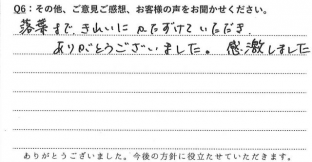 Q6：その他、ご意見ご感想、お客様の声をお聞かせください。
落葉まで、きれいに かたずけていただき
ありがとうございました。感激しました
ありがとうございました。今後の方針に役立たせていただきます。